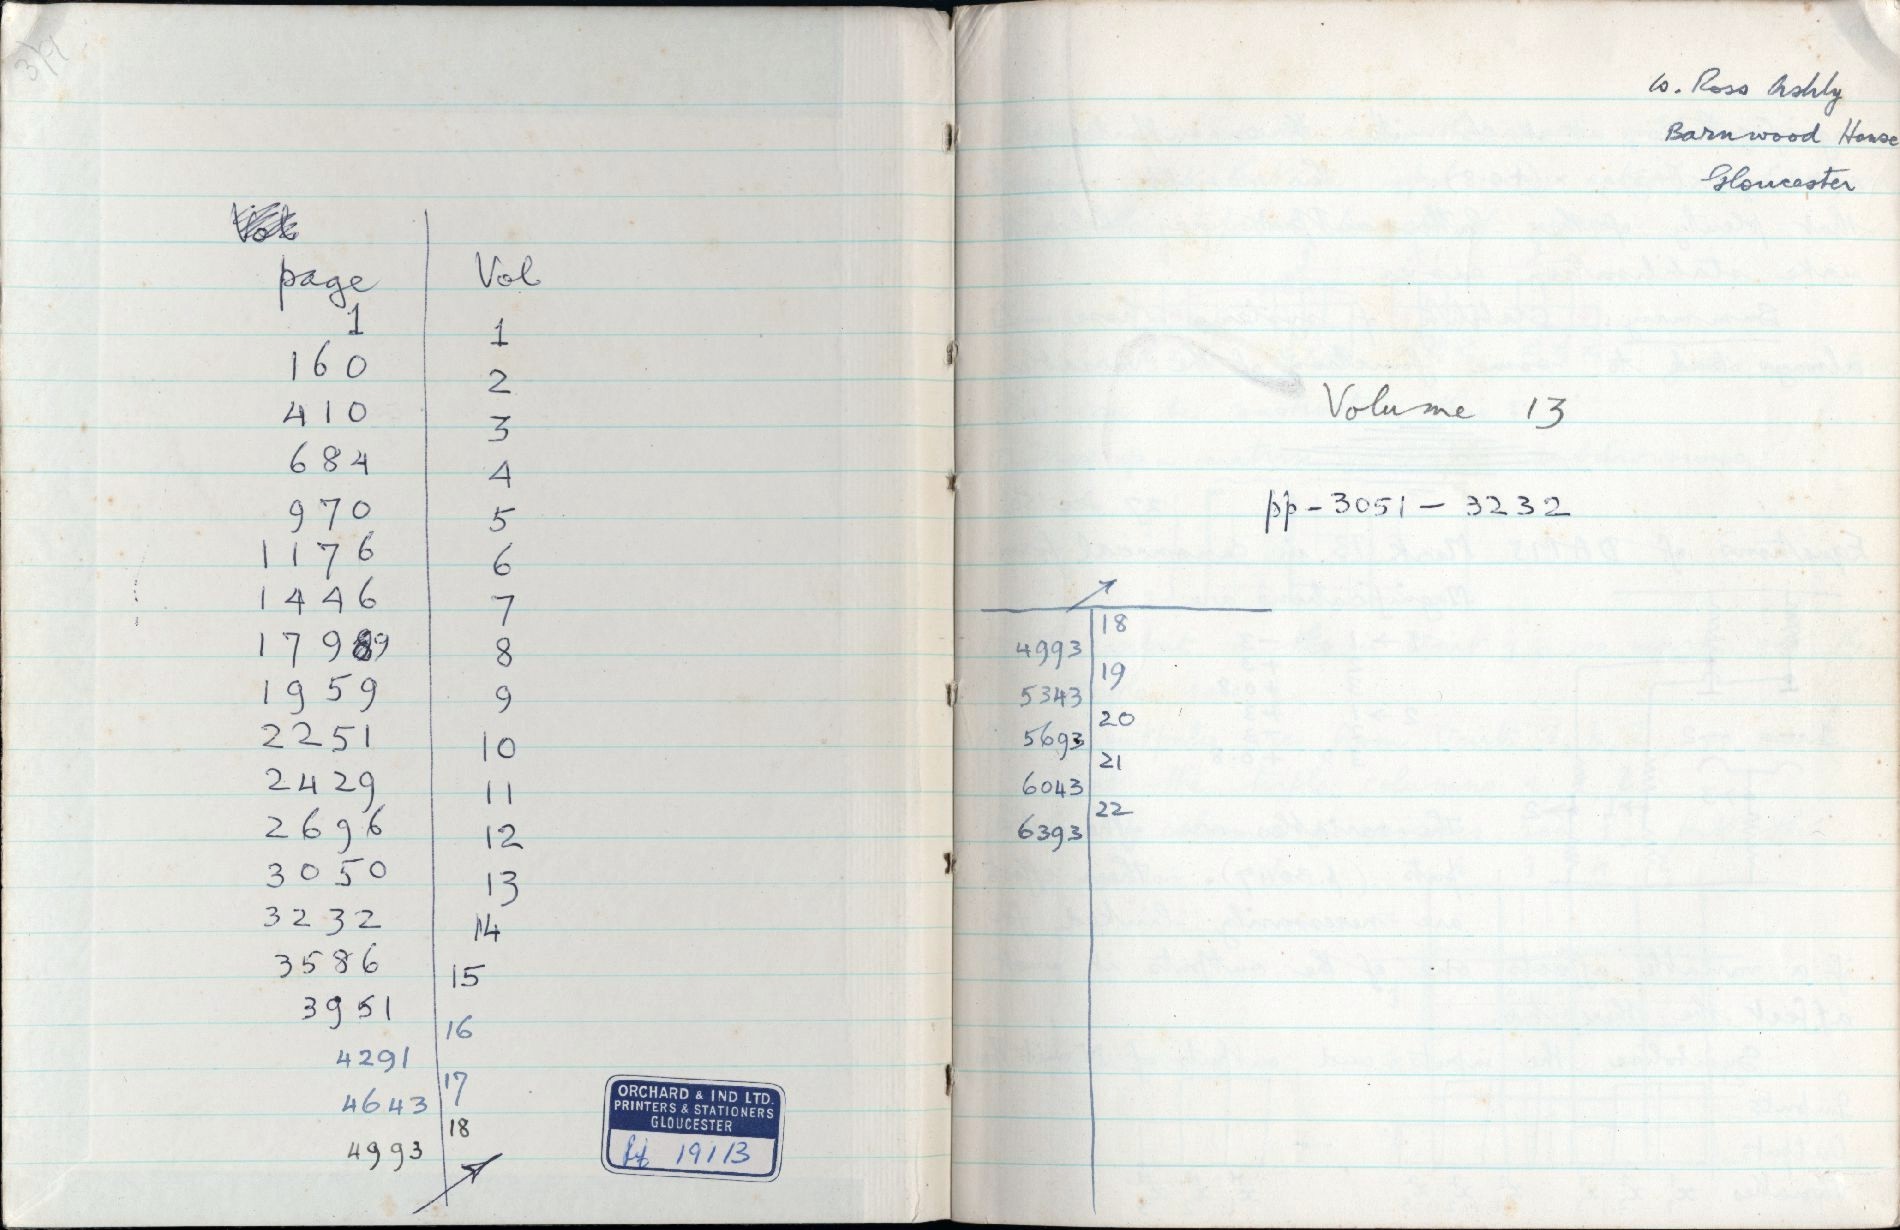 page Vol
1 1
160 2
410 3
684 4
970 5
1176 6
1446 7
1789 8
1959 9
2251 10
2429 11
2696 12
3050 13
3232 14
3586 15
3951
16
4291
17
4643
18
4993
ORCHARD & IND LTD.
PRINTERS & STATIONERS
GLOUCESTER
191/3
W. Ross Ashby
Barnwood House
Gloucester
Volume 13
pp - 3051 - 3232
18
4993
19
5343
20
5693
21
6043
22
6393